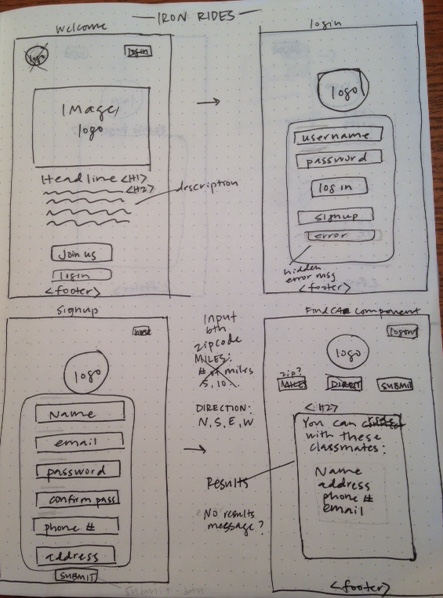 IRON RIDES
Welcome
logo
login
IMage/
logo
Headline <H1>
<H2>
description
Join us
login
<footer>
login
logo
username
password
log in
signup
error
hidden
error msg
<footer>
signup
logo
Name
email
password
confirm pass
phone #
address
SUBMIT
Input
btn
zipcode
MILES:
# of miles
5, 10..
DIRECTION:
N, S, E, W
Results
No results
message?
FIND CAR Component
logout
logo
zip?
MILES
DIRECT
SUBMIT
<H2>
You can
with these
classmates:
Name
address
phone #
email
<footer>